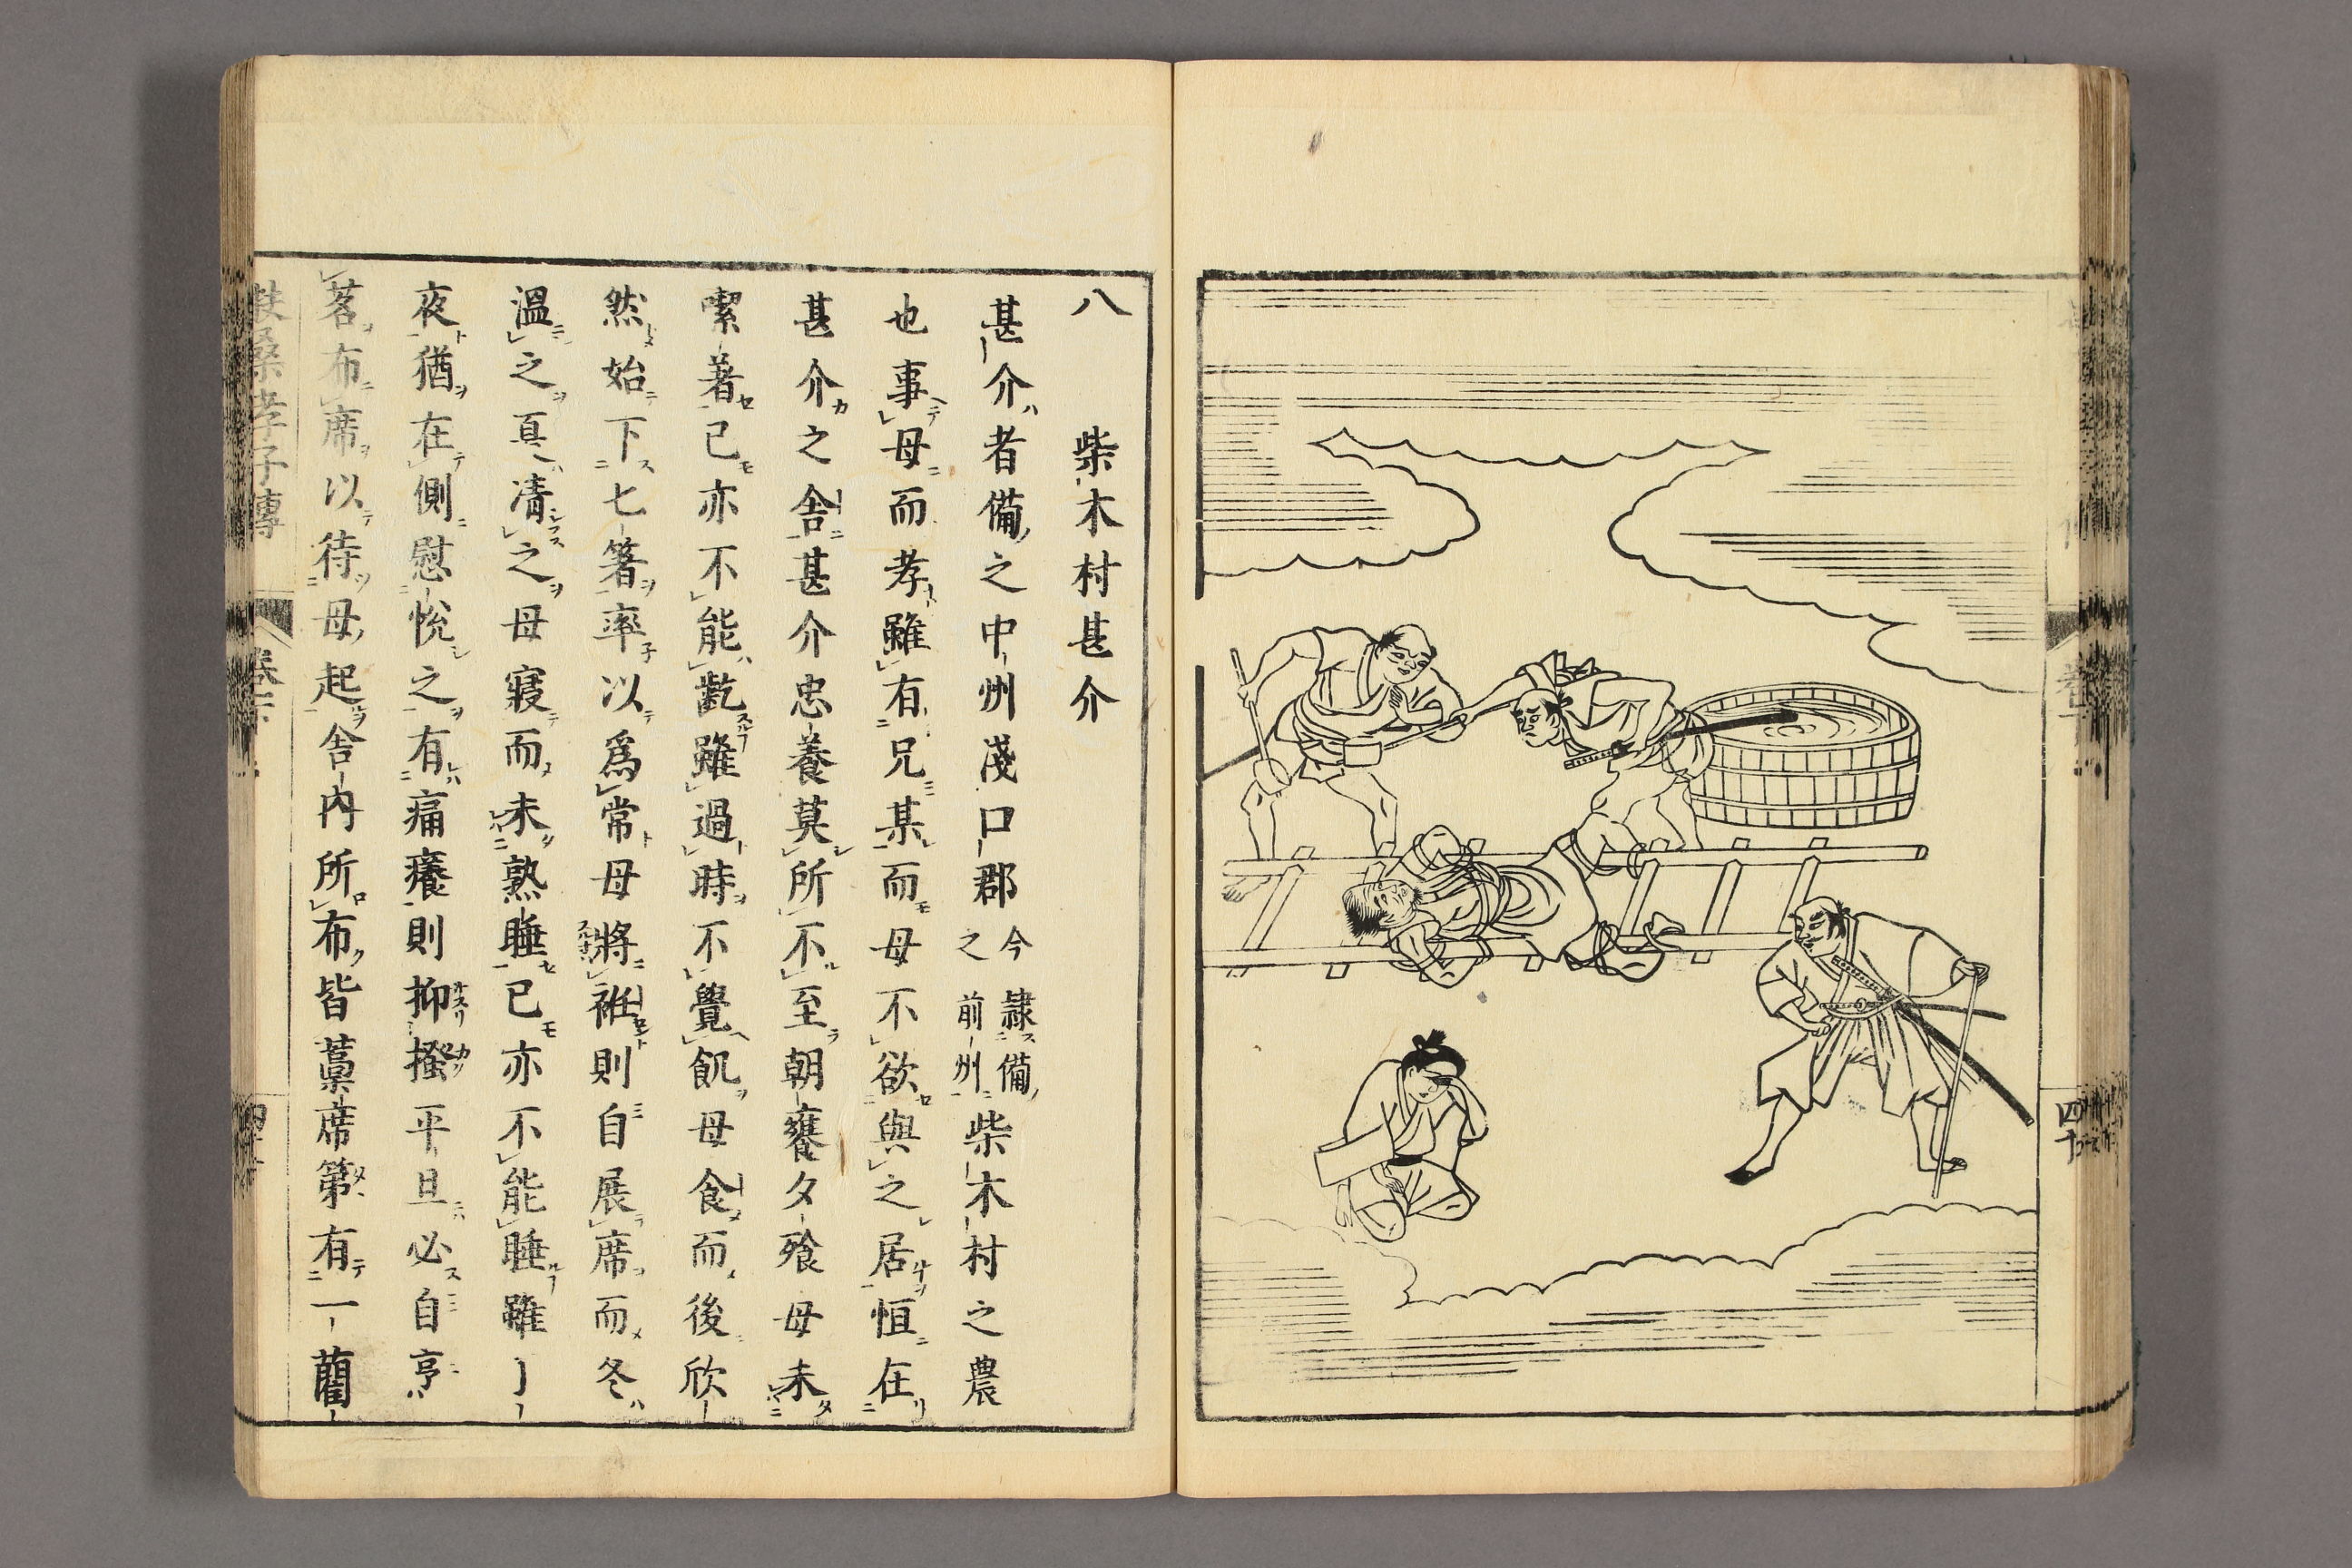 八　柴木村甚介
甚介者備之中州淺口郡今隷備之前州柴木村之農
也事母而孝雖有兄某而母不欲與之居恒在
甚介之舎甚介忠養莫所不至朝饔夕飱母未
嚛著已亦不能齕雖過時不覺飢母食而後欣
然始下七箸率以爲常母將衽則自展席而冬
溫之夏凊之母寢而未熟睡已亦不能睡雖
夜猶在側慰悅之有痛癢則抑搔平旦必自烹
茗布席以待母起舎內所布皆藁席第有一藺
扶桑孝子傳
卷下
四十